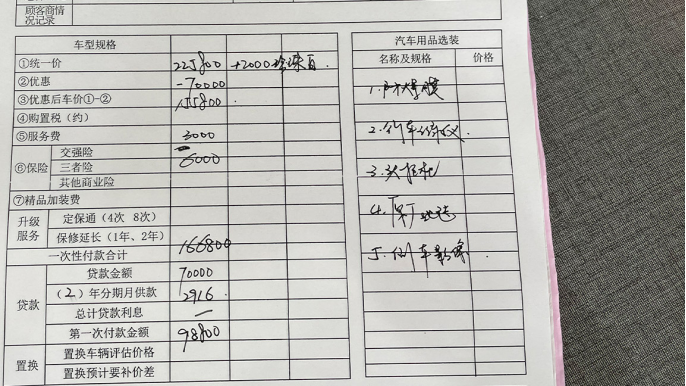 顾客商情
况记录
车型规格
①统一价 225800 +2000珍珠白
②优惠 -70000
③优惠后车价①-② 155800
④购置税（约）
⑤服务费 3000
⑥保险
交强险
三者险 6000
其他商业险
⑦精品加装费
升级
服务
定保通（4次 8次）
保修延长（1年、2年）
一次性付款合计 166800
贷款
贷款金额 70000
（2）年分期月供款 2916
总计贷款利息 —
第一次付款金额 98800
置换
置换车辆评估价格
置换预计要补价差
汽车用品选装
名称及规格 价格
1.膜
2.行车记录仪
3.
4.
5.倒车影像